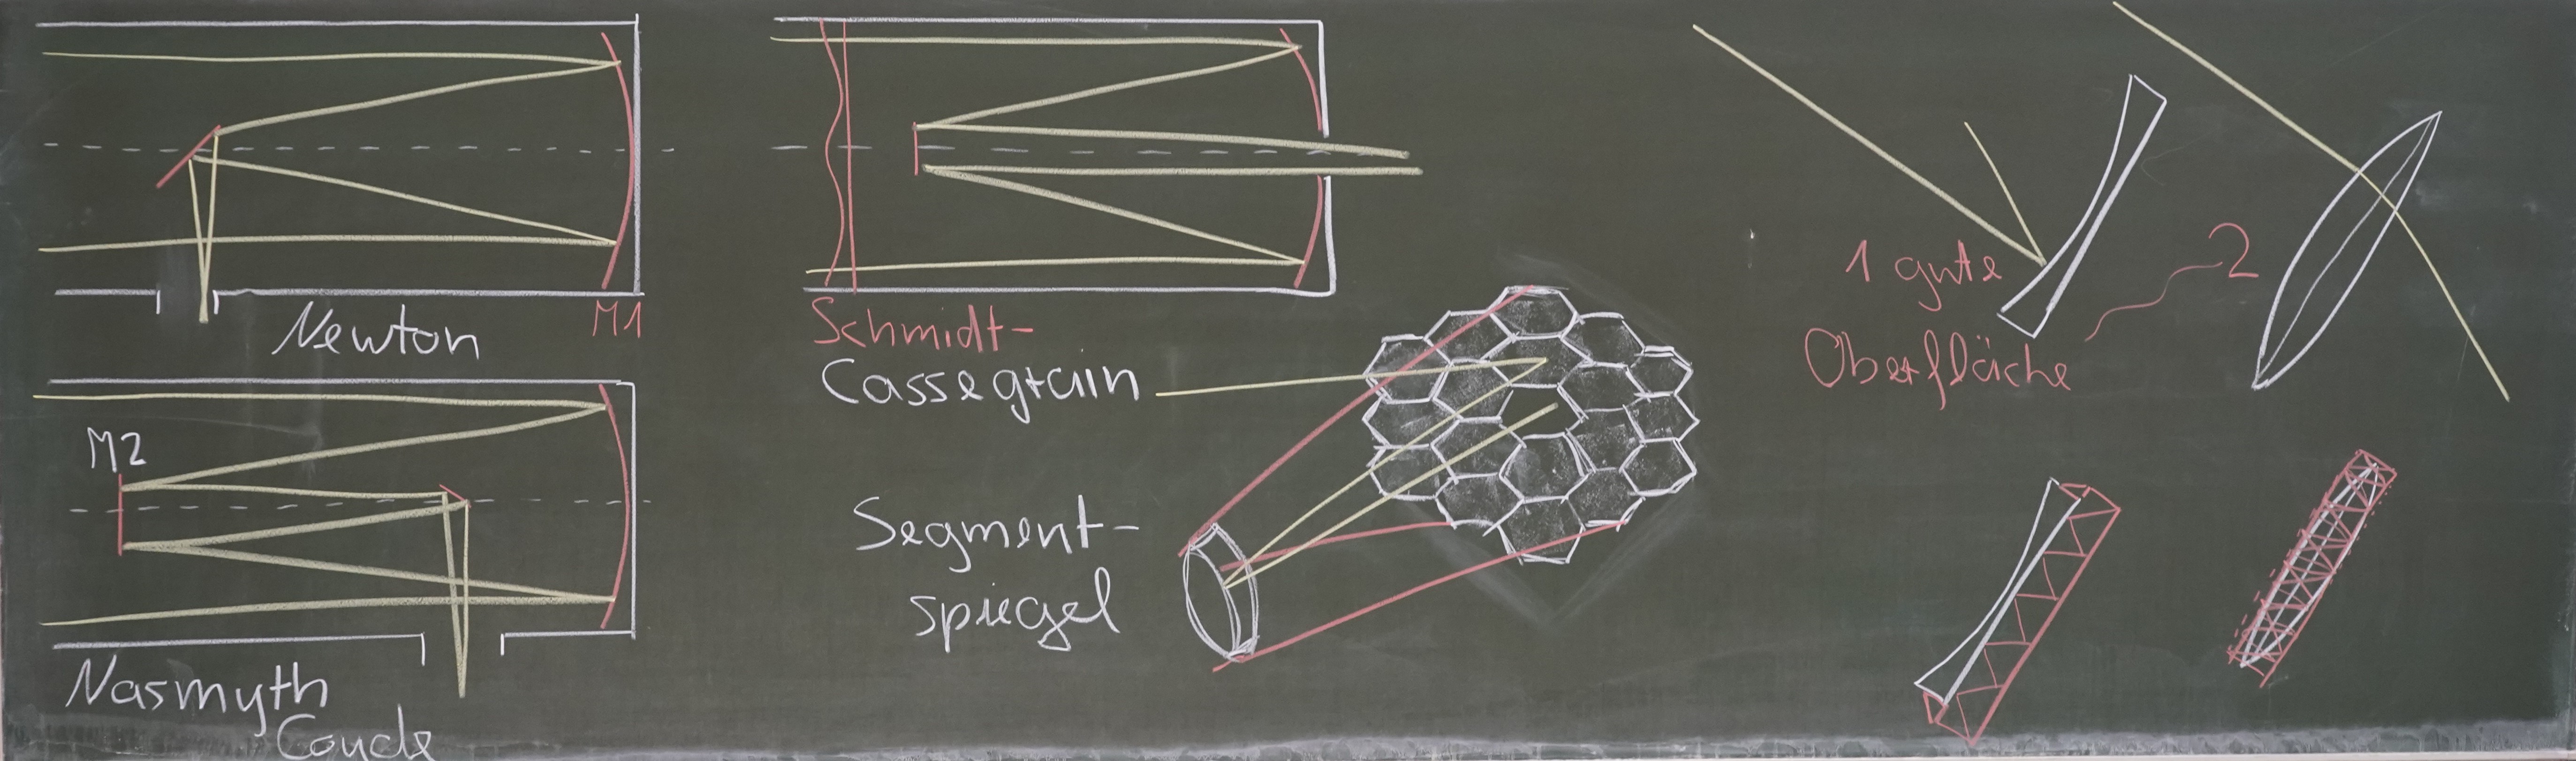 Newton
M1
M2
Nasmyth
Coude
Schmidt-
Cassegrain
Segment-
spiegel
1 gute
Oberfläche
2